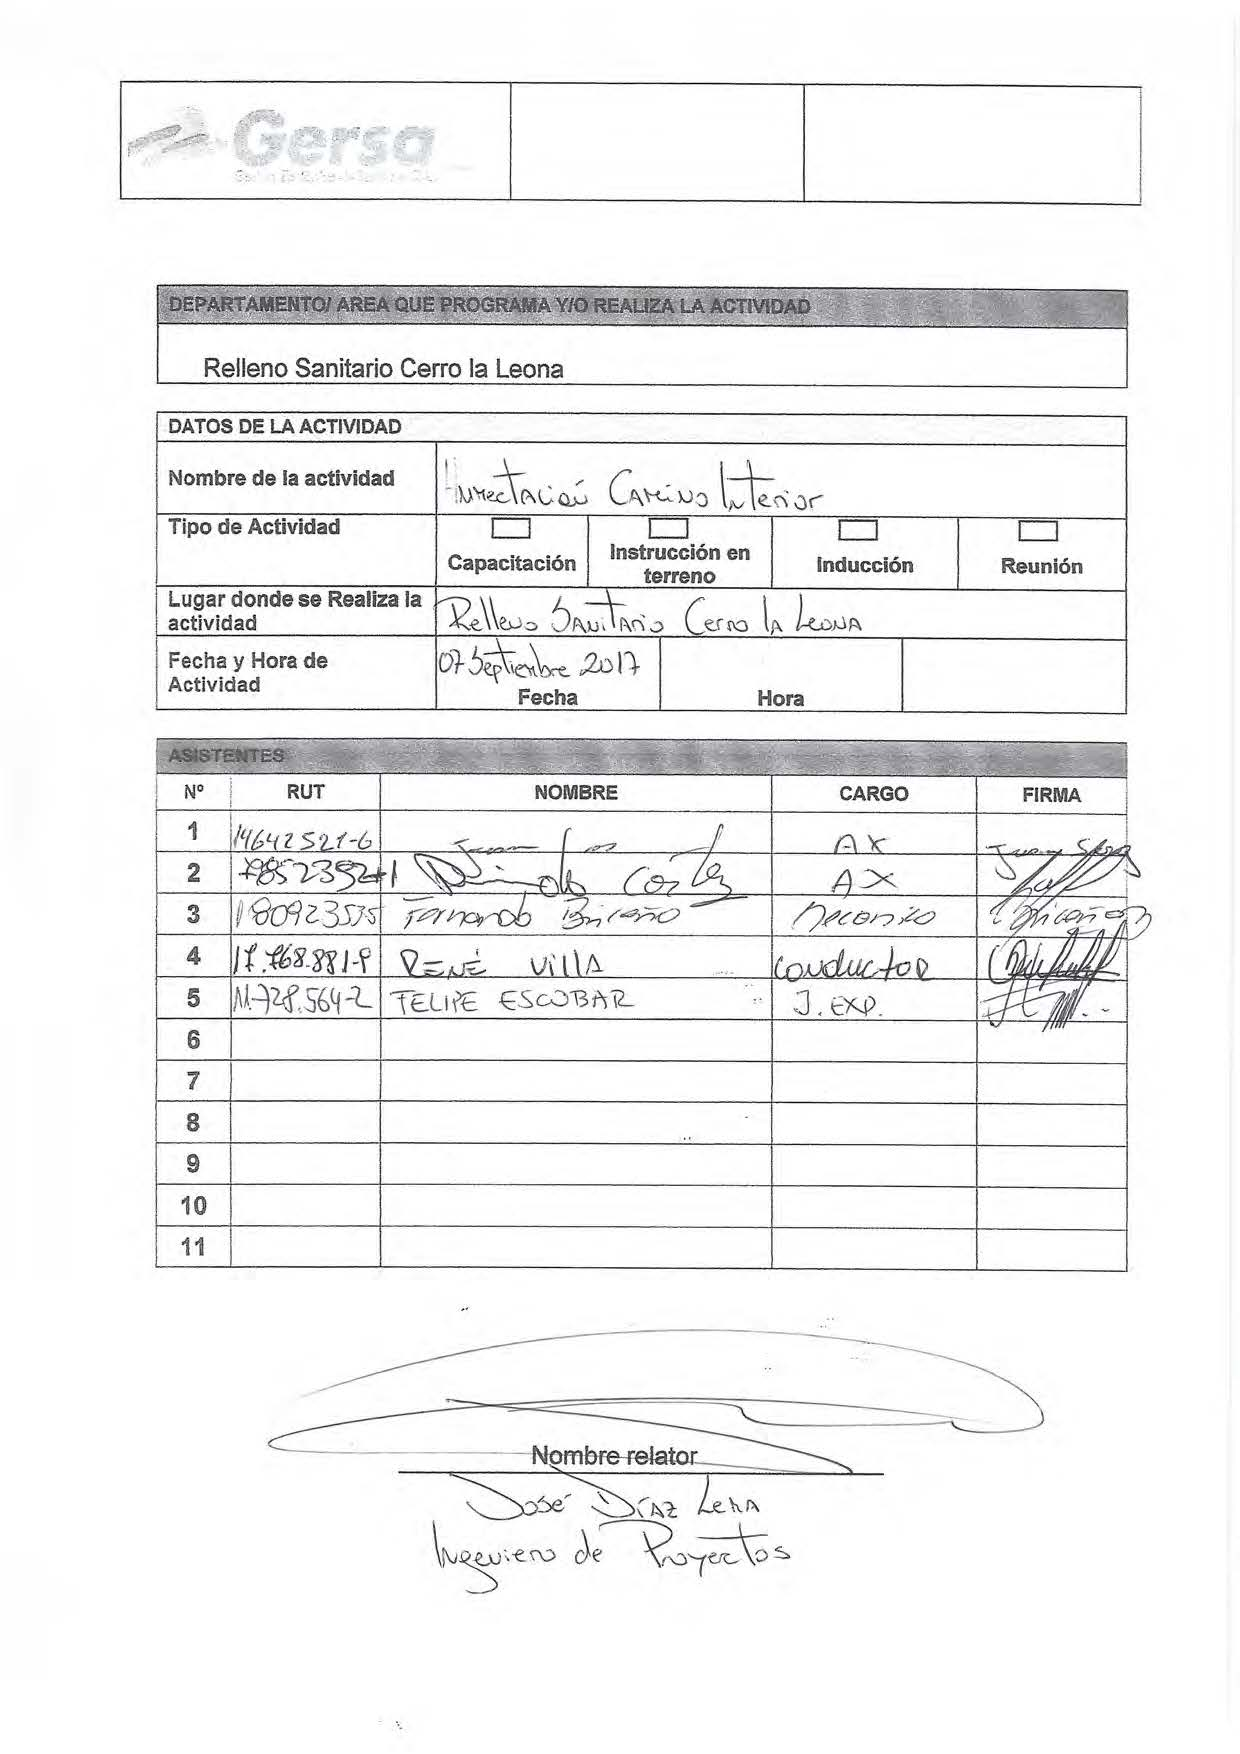 Gersa
DEPARTAMENTO/ AREA QUE PROGRAMA Y/O REALIZA LA ACTIVIDAD
Relleno Sanitario Cerro la Leona
DATOS DE LA ACTIVIDAD
Nombre de la actividad Humectación Camino Interior
Tipo de Actividad
Capacitación Instrucción en terreno Inducción Reunión
Lugar donde se Realiza la actividad Relleno Sanitario Cerro la Leona
Fecha y Hora de Actividad 07 Septiembre 2017
Fecha Hora
ASISTENTES
Nº RUT NOMBRE CARGO FIRMA
1 14642521-6 Juan AX Juan
2 Cortez AX
3 180923535 Fernando Briceño Mecanico Briceño
4 17.768.881-9 RENÉ VILLA CONDUCTOR
5 11.728.564-2 FELIPE ESCOBAR J. EXP.
6
7
8
9
10
11
Nombre relator
José Díaz Lema
Ingeniero de Proyectos